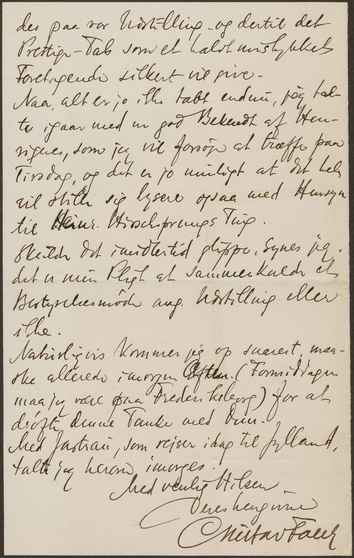 des paa vor Udstilling - og dertil det
Prestige-Tab som et halvt mislykket
Foretagende sikkert vil give.
Naa, alt er jo ikke tabt endnu, jeg tal-
te igaar med en god Bekendt af Hen-
rigues, som jeg vil forsøge at træffe paa
Tirsdag, og det er jo muligt at det hele
vil stille sig lysere ogsaa med Hensyn
til Heinr. Hirschsprungs Ting.
Skulde det imidlertid glippe, synes jeg
det er min Pligt at sammenkalde et
Bestyrelsesmøde ang. Udstilling eller
ikke.
Naturligvis kommer jeg op snarest, maa-
ske allerede imorgen Aften. (Formiddagen
maa jeg være paa Frederiksborg) for at
drøfte denne Tanke med Dem.
Med Jastrau, som rejser idag til Jylland,
talte jeg herom imorges.
Med venlig Hilsen
Deres hengivne
Gustav Falck